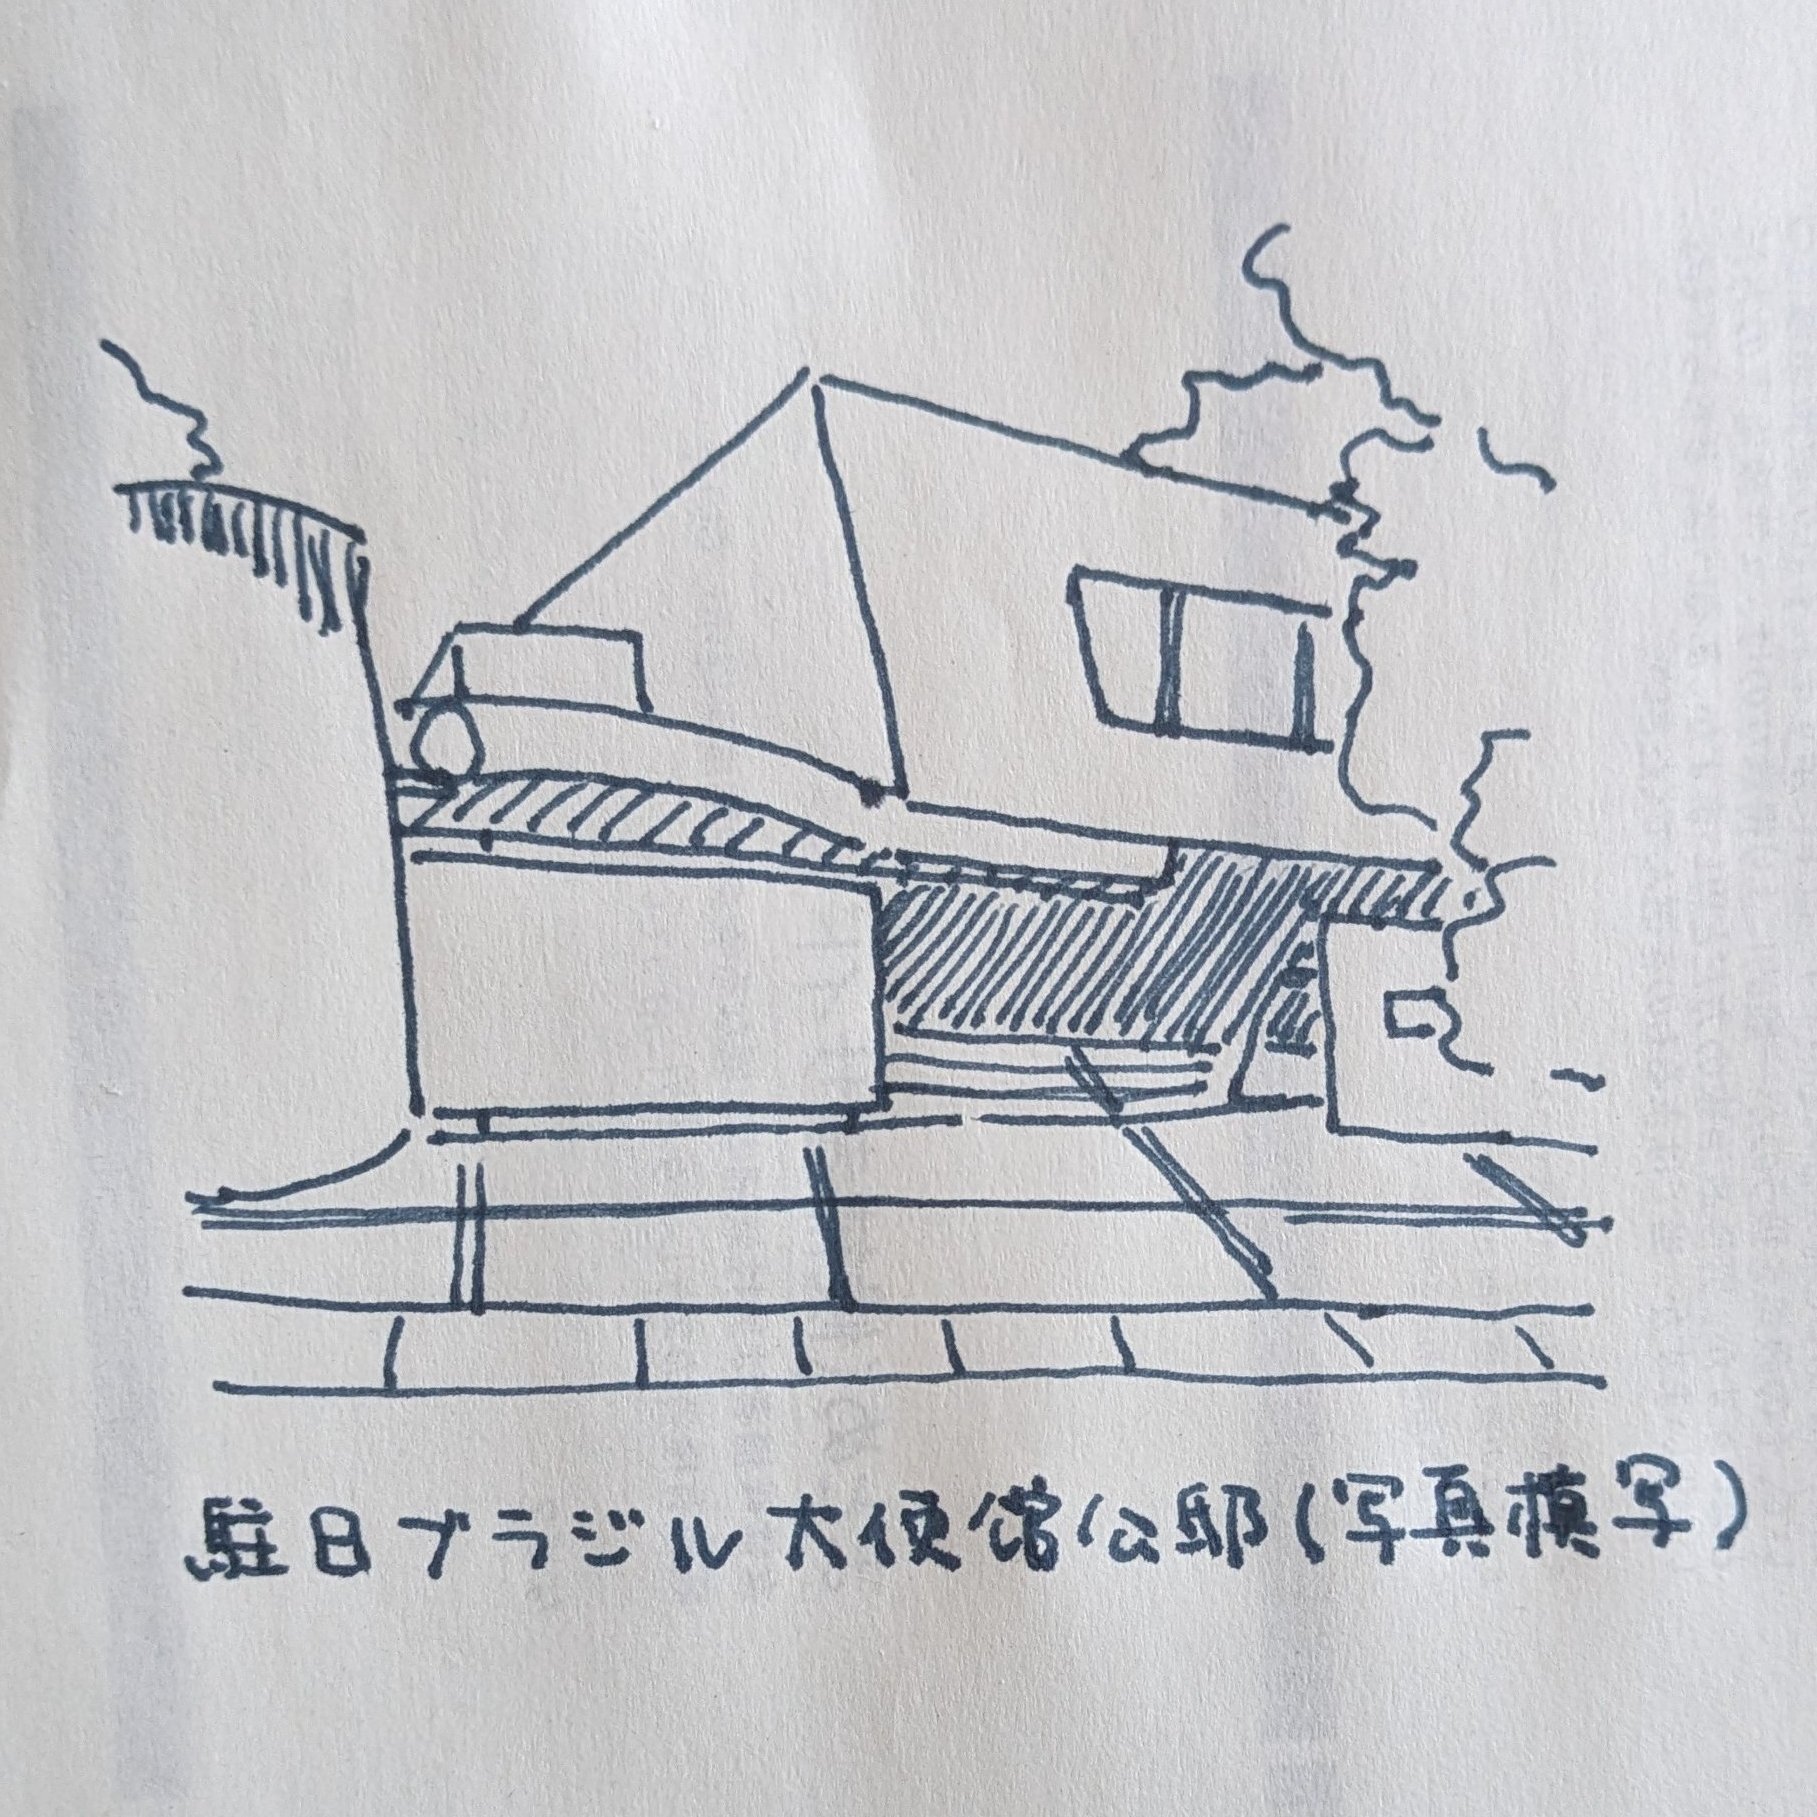 駐日ブラジル大使館公邸(写真模写)